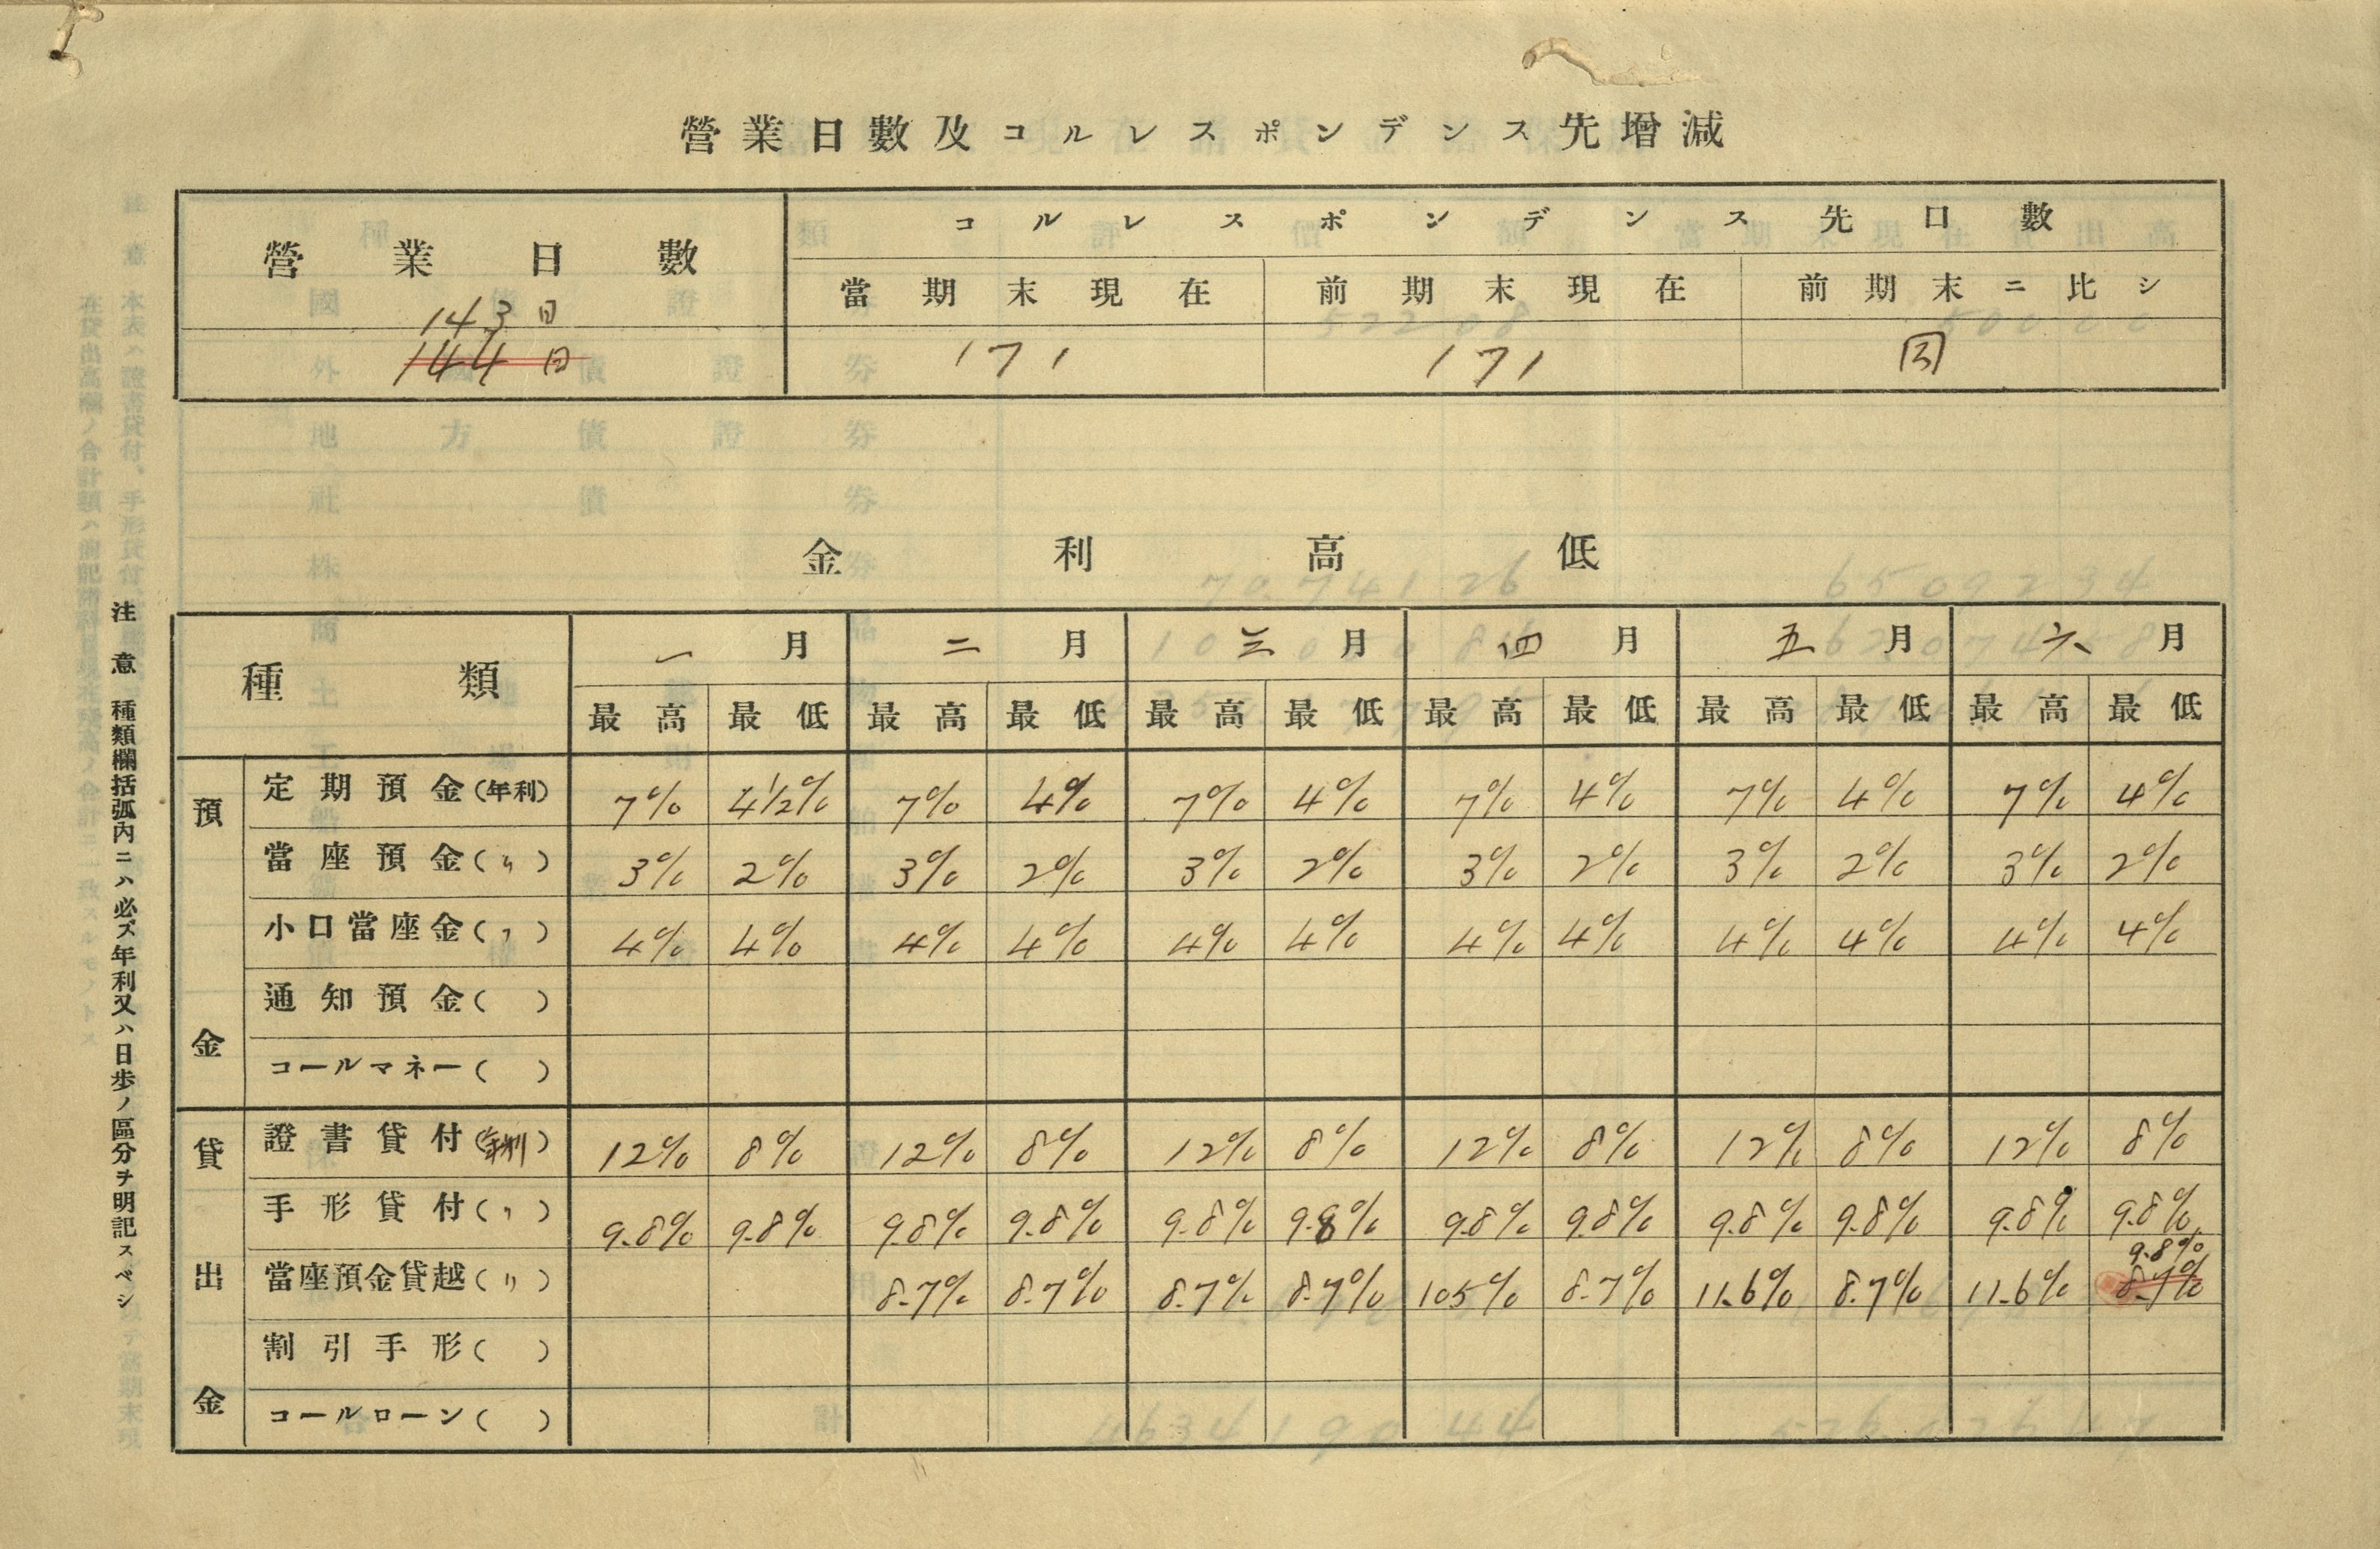 營業日數及コルレスポンデンス先增減
營業日數 コルレスポンデンス先口數
當期末現在 前期末現在 前期末ニ比シ
143日
144日 171 171 同
金利高低
種類 一月 二月 三月 四月 五月 六月
最高 最低 最高 最低 最高 最低 最高 最低 最高 最低 最高 最低
預金
定期預金(年利) 7% 4½% 7% 4% 7% 4% 7% 4% 7% 4% 7% 4%
當座預金(〃) 3% 2% 3% 2% 3% 2% 3% 2% 3% 2% 3% 2%
小口當座金(〃) 4% 4% 4% 4% 4% 4% 4% 4% 4% 4% 4% 4%
通知預金( )
コールマネー( )
貸出金
證書貸付(年利) 12% 8% 12% 8% 12% 8% 12% 8% 12% 8% 12% 8%
手形貸付(〃) 9.8% 9.8% 9.8% 9.8% 9.8% 9.8% 9.8% 9.8% 9.8% 9.8% 9.8% 9.8%
9.8%
當座預金貸越(〃) 8.7% 8.7% 8.7% 8.7% 105% 8.7% 11.6% 8.7% 11.6% 8.7%
割引手形( )
コールローン( )
注意 種類欄括弧內ニハ必ズ年利又ハ日歩ノ區分ヲ明記スベシ